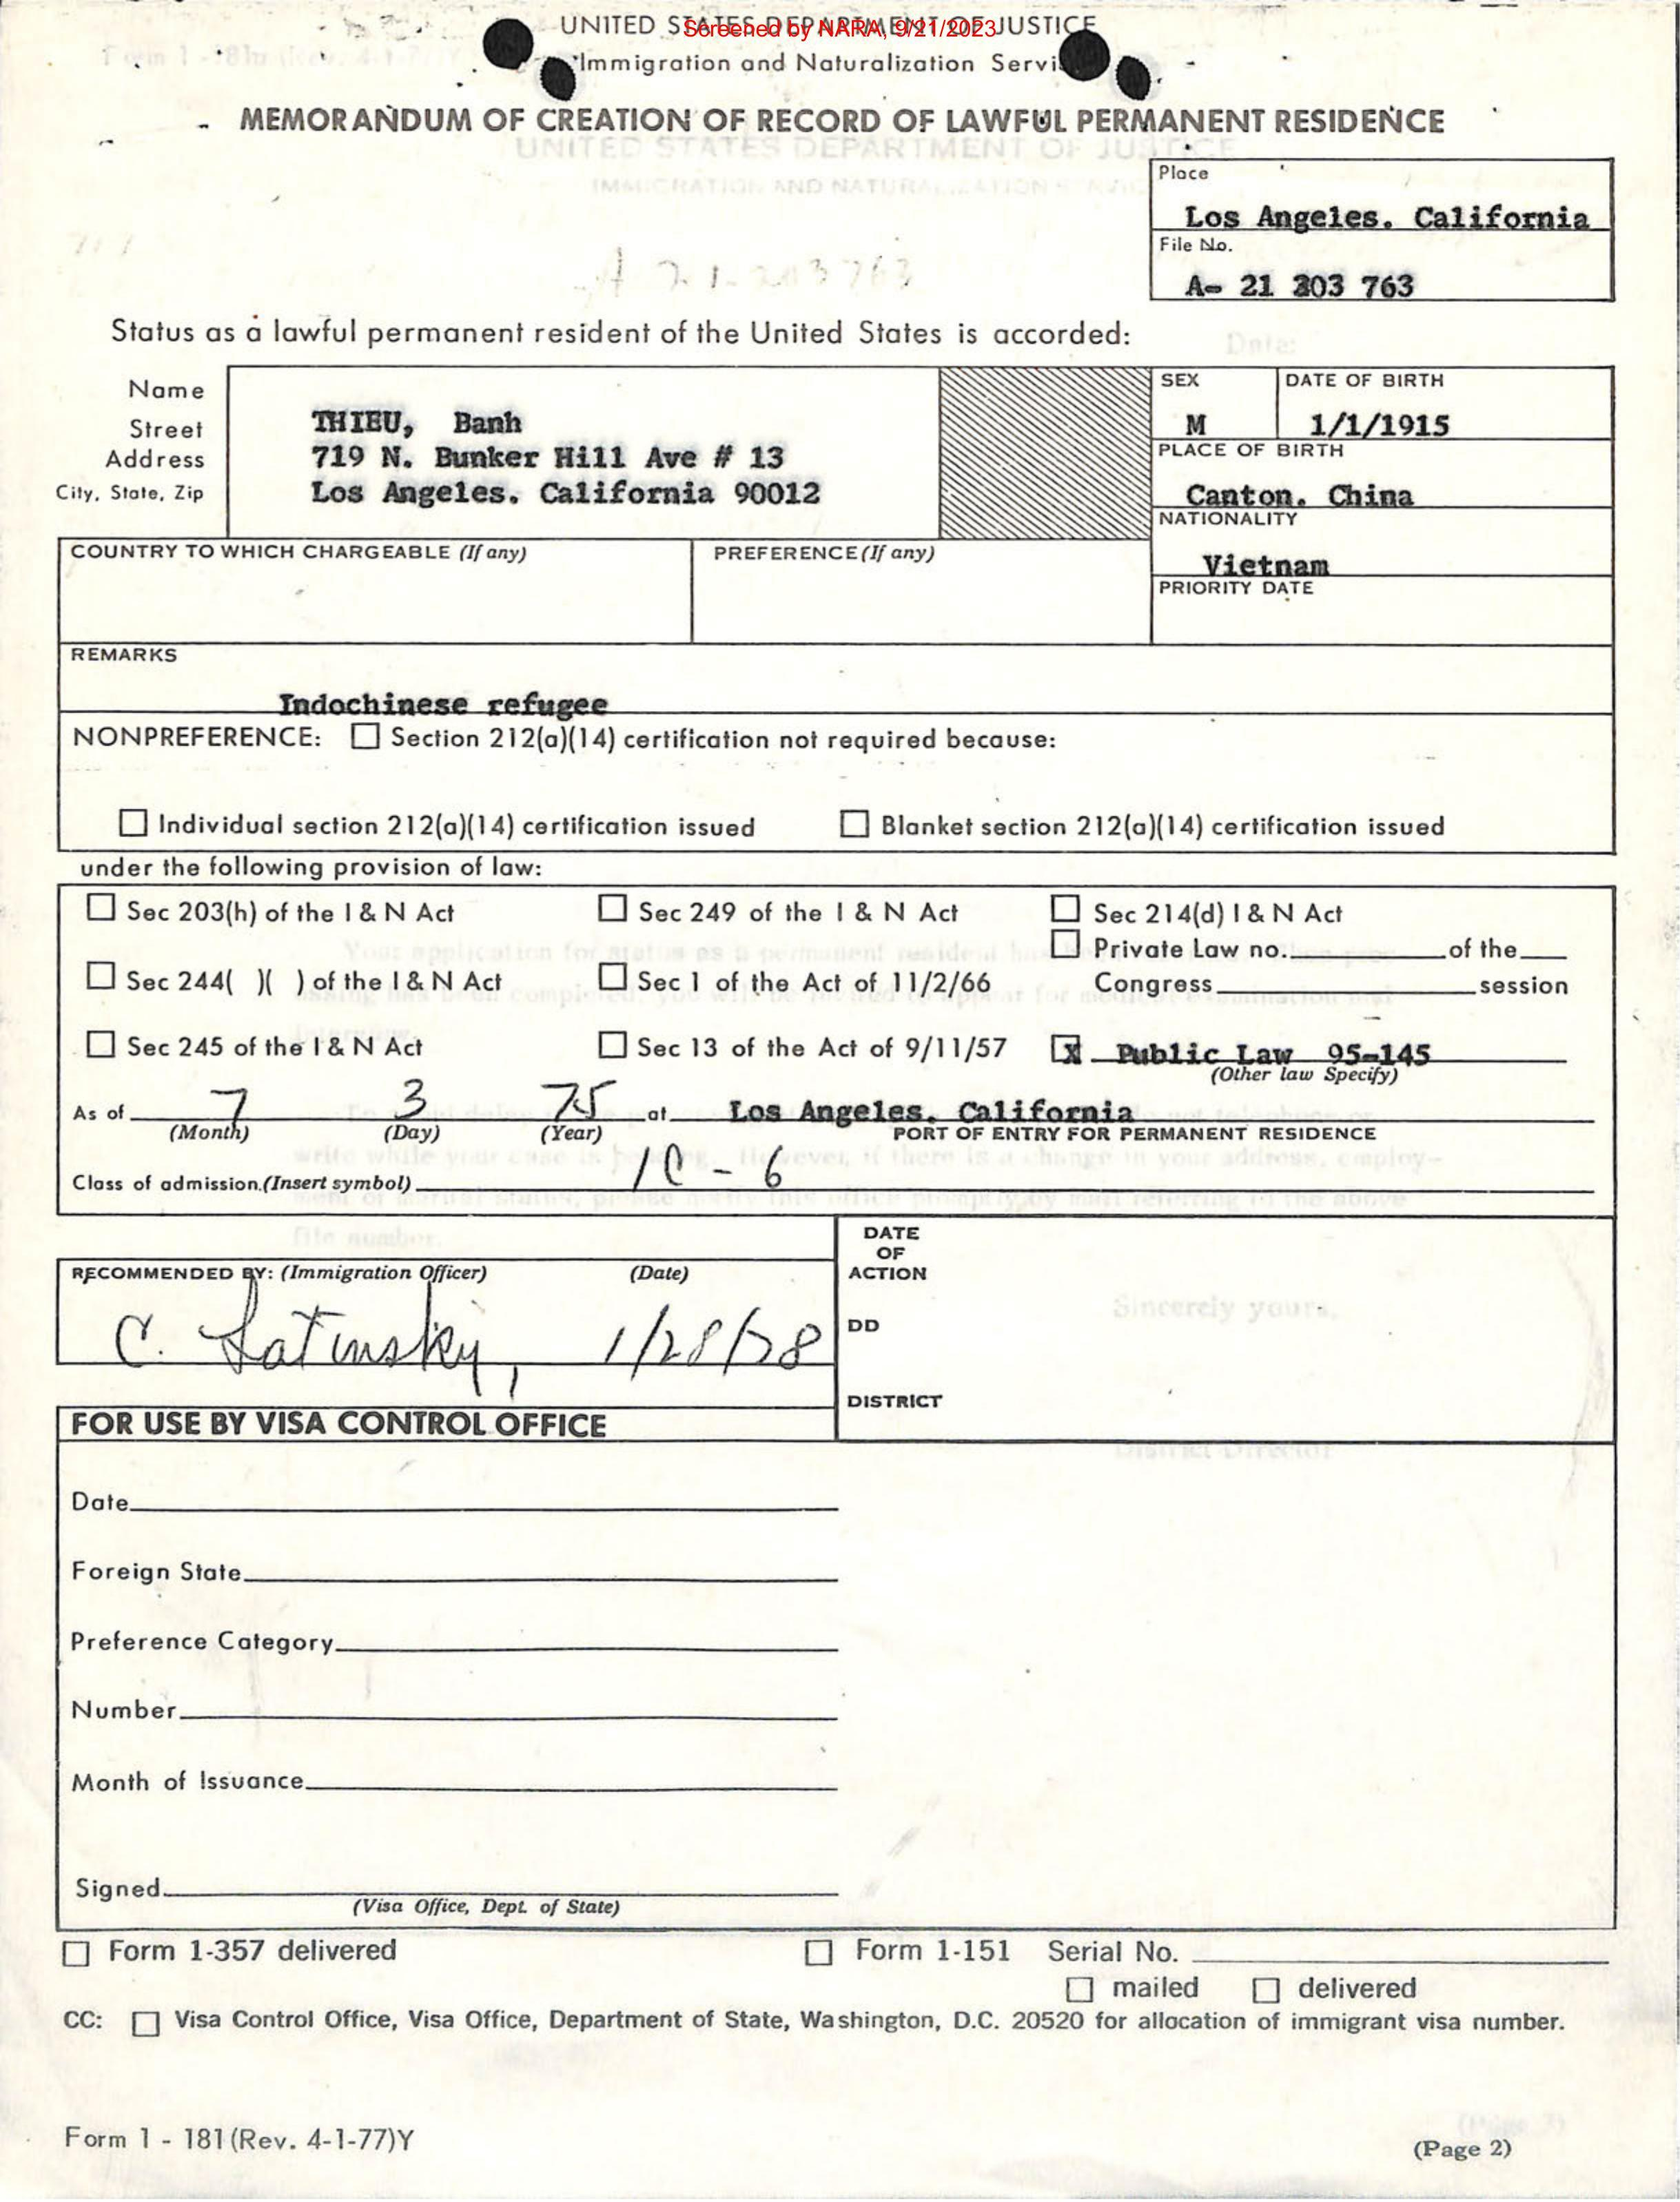 UNITED STATES DEPARTMENT OF JUSTICE
Screened by NARA, 9/21/2023
Immigration and Naturalization Servi
MEMORANDUM OF CREATION OF RECORD OF LAWFUL PERMANENT RESIDENCE
UNITED STATES DEPARTMENT OF JUSTICE
IMMIGRATION AND NATURALIZATION SERVICE
Place
Los Angeles. California
File No.
A- 21 303 763
A 21-203763
Status as a lawful permanent resident of the United States is accorded:
Date:
Name
Street
Address
City, State, Zip
THIEU, Banh
719 N. Bunker Hill Ave # 13
Los Angeles. California 90012
SEX
M
DATE OF BIRTH
1/1/1915
PLACE OF BIRTH
Canton. China
NATIONALITY
Vietnam
PRIORITY DATE
COUNTRY TO WHICH CHARGEABLE (If any)
PREFERENCE (If any)
REMARKS
Indochinese refugee
NONPREFERENCE: ☐ Section 212(a)(14) certification not required because:
☐ Individual section 212(a)(14) certification issued ☐ Blanket section 212(a)(14) certification issued
under the following provision of law:
☐ Sec 203(h) of the I & N Act ☐ Sec 249 of the I & N Act ☐ Sec 214(d) I & N Act
☐ Private Law no. of the
☐ Sec 244( )( ) of the I & N Act ☐ Sec 1 of the Act of 11/2/66 Congress session
☐ Sec 245 of the I & N Act ☐ Sec 13 of the Act of 9/11/57 ☒ Public Law 95-145
(Other law Specify)
As of 7 3 75 at Los Angeles. California
(Month) (Day) (Year) PORT OF ENTRY FOR PERMANENT RESIDENCE
write while your case is pending. However, if there is a change in your address, employ-
Class of admission.(Insert symbol) IC-6
file number.
RECOMMENDED BY: (Immigration Officer) (Date)
C. Latinsky, 1/28/78
DATE
OF
ACTION
DD
DISTRICT
Sincerely yours,
District Director
FOR USE BY VISA CONTROL OFFICE
Date
Foreign State
Preference Category
Number
Month of Issuance
Signed
(Visa Office, Dept. of State)
☐ Form 1-357 delivered ☐ Form 1-151 Serial No.
☐ mailed ☐ delivered
CC: ☐ Visa Control Office, Visa Office, Department of State, Washington, D.C. 20520 for allocation of immigrant visa number.
Form 1 - 181 (Rev. 4-1-77)Y
(Page 2)